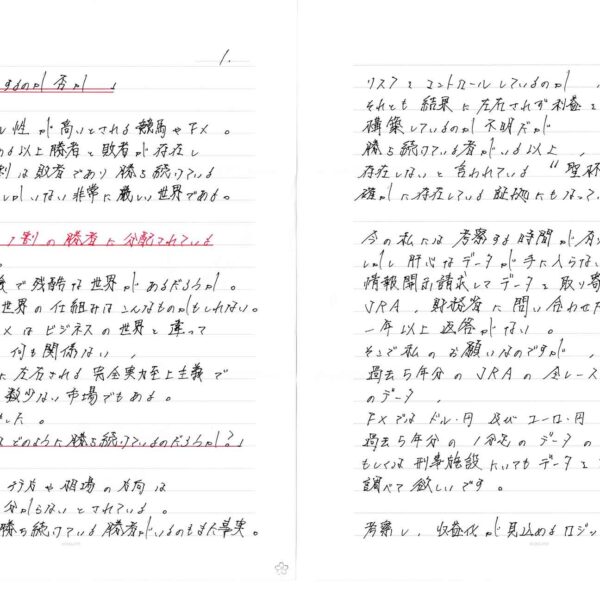 1.
するのか 否か 」
性 が 高いとされる 競馬 や FX 。
る以上 勝者 と 敗者 が 存在し
割 は 敗者 であり 勝ち 続けている
しかいない 非常に 厳しい 世界である。
1割 の 勝者 に 分配されている
。
で 残酷な 世界 が あるだろうか 。
世界 の 仕組みは こんなものかもしれない。
X は ビジネス の 世界 と 違って
何も 関係ない 、
に 左右される 完全実力至上主義 で
数少ない 市場 でも ある。
した 。
どのように 勝ち 続けているのだろうか?」
や 相場 の 方向 は
分からない と されている 。
勝ち 続けている 勝者がいるのもまた事実。
リスク を コントロール しているのか 、
それとも 結果 に 左右されず 利益 を
構築しているのか 不明だが
勝ち 続けている 者がいる 以上 、
存在しない と 言われている “ 聖杯
確かに 存在している 証拠にもなって
今の 私には 考察する 時間 が 有
しかし 肝心な データ が 手に 入らない
情報開示請求して データ を 取り寄
JRA 、 財務省 に 問い合わせた
一年 以上 返答 が ない 。
そこで 私の お願いなのですが 、
過去 5年分 の JRA の 全レース
の データ 、
FX では ドル・円 及び ユーロ・円
過去 5年分 の 1分足 の データ の
もしくは 刑事施設 にいても データ を
調べて 欲しいです 。
考察し 、 収益化 が 見込める ロジッ